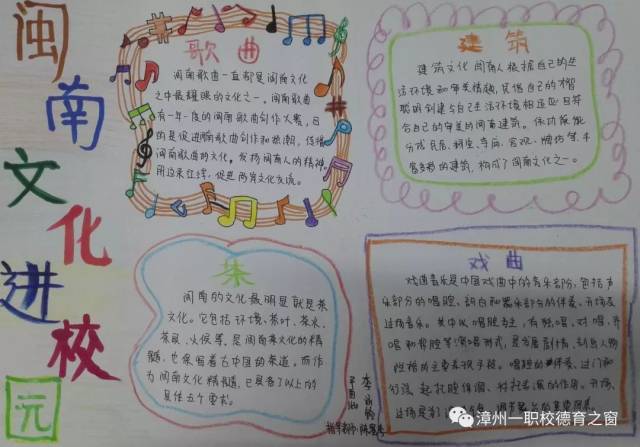 闽
南
文
化
进
校
园
歌曲
闽南歌曲一直都是闽南文化
之中最耀眼的文化之一。闽南歌曲
有一年一度的闽南歌曲创作大赛,目
的是促进闽南歌曲创作和热潮,传播
闽南歌曲的文化。发扬闽南人的精神。
用边采红线,促进两岸文化交流。
建筑
建筑文化 闽南人根据自己的生
活环境和审美情趣,凭借自己的智
聪明创建与自己生活环境相适应且符
合自己的审美的闽南建筑。
分成民居、祠堂、寺庙、宫观、牌坊等,丰
富多彩的建筑,构成了闽南文化之一。
茶
闽南的文化最明显就是茶
文化。它包括环境、茶叶、茶水、
茶具、火侯等,是闽南茶文化的精
髓,也承写着古中国的茶道。而作
为闽南文化精髓,已是备了以上的
具佳五个要求。
戏曲
戏曲音乐是中国戏曲中的音乐部份,包括声
乐部分的唱腔、韵白和器乐部分的伴奏、开场及
过场音乐。其中以唱腔为主,有独唱、对唱、齐
唱和帮腔等演唱形式,是发展剧情、刻画人物
性格的主要表现手段。唱腔的伴奏、过门和
行弦,起托腔保调、衬托表演的作用。开场、
指导老师:
漳州一职校德育之窗